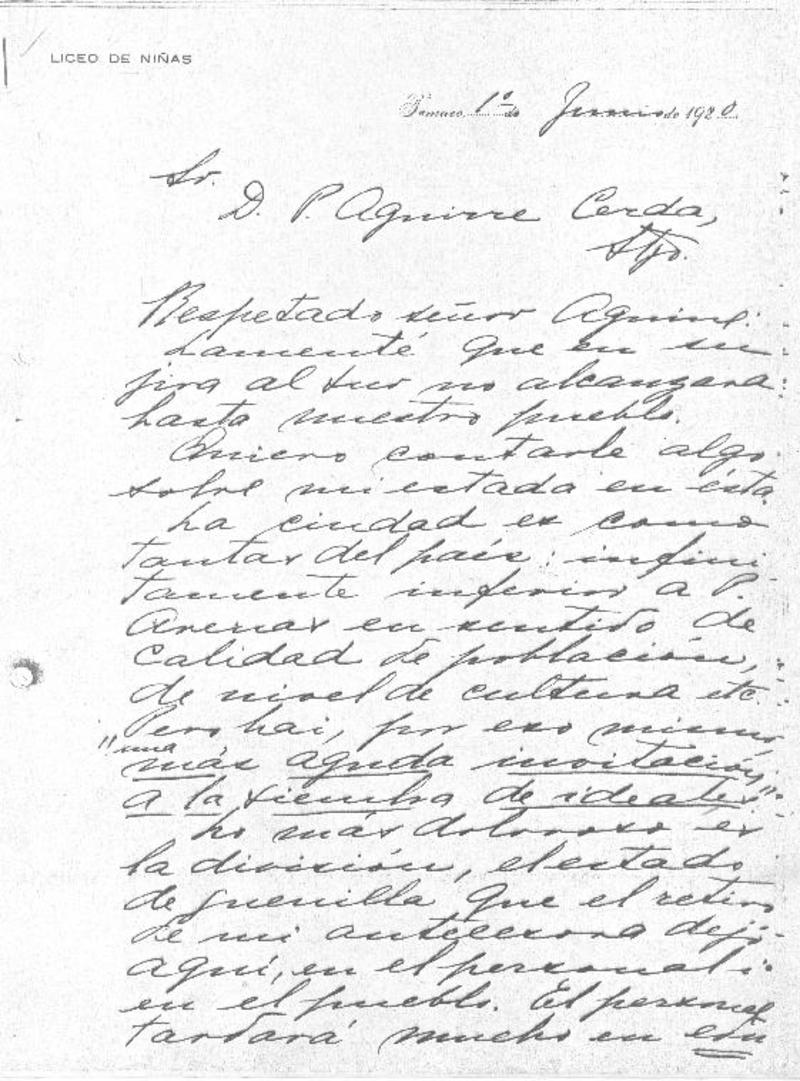 LICEO DE NIÑAS
Temuco, 1º de Junio de 1920
Sr.
D. P. Aguirre Cerda,
Stgo.
Respetado señor Aguirre:
Lamenté que en su
jira al sur no alcanzara
hasta nuestro pueblo.
Quiero contarle algo
sobre mi estada en ésta.
La ciudad es como
tantas del país: infini
tamente inferior a P.
Arenas en sentido de
calidad de población,
de nivel de cultura etc.
Pero hai, por eso mismo,
"una
más aguda invitación
a la siembra de ideales".
Lo más doloroso es
la división, el estado
de guerrilla que el retiro
de mi antecesora dejó
aquí, en el personal i
en el pueblo. El personal
tardará mucho en